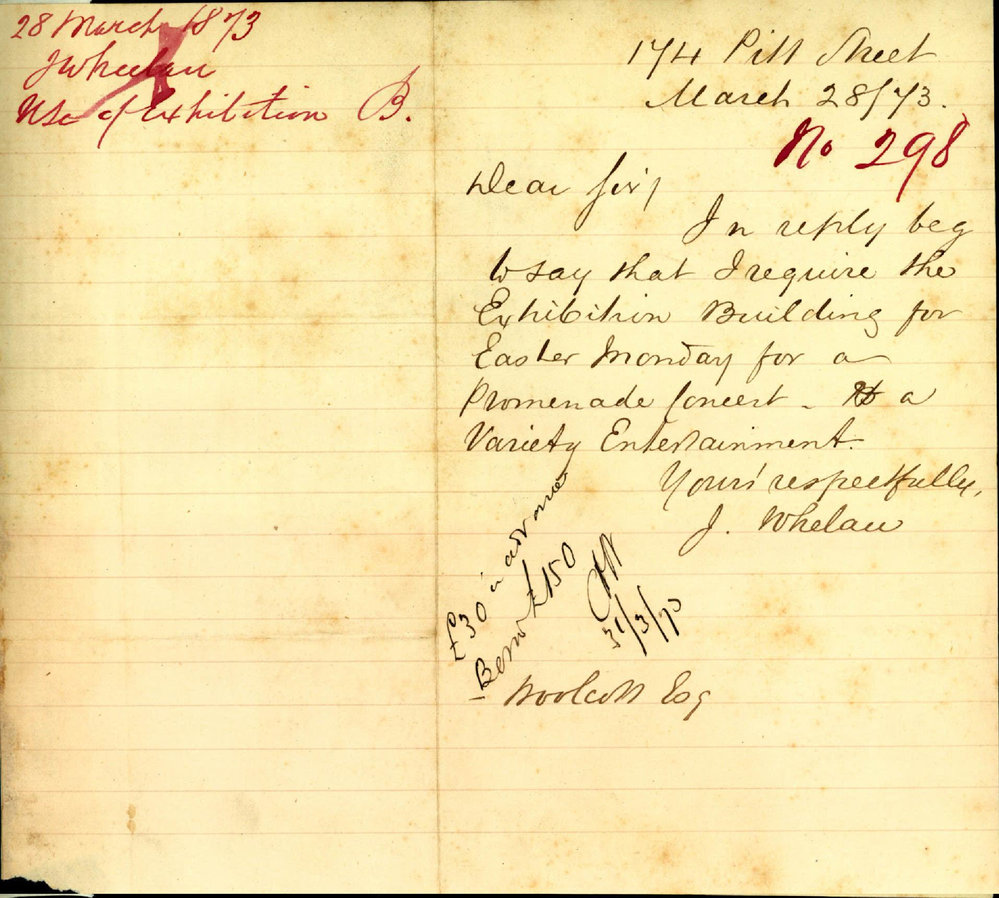 28 March 1873
J Whelan
Use of Exhibition B.
174 Pitt Street
March 28/73.
No 298
Dear Sir,
In reply beg
to say that I require the
Exhibition Building for
Easter Monday for a
Promenade Concert - & a
Variety Entertainment.
Yours respectfully,
J. Whelan
£30 in advance
Bond £150
31/3/73
Woolcott Esq